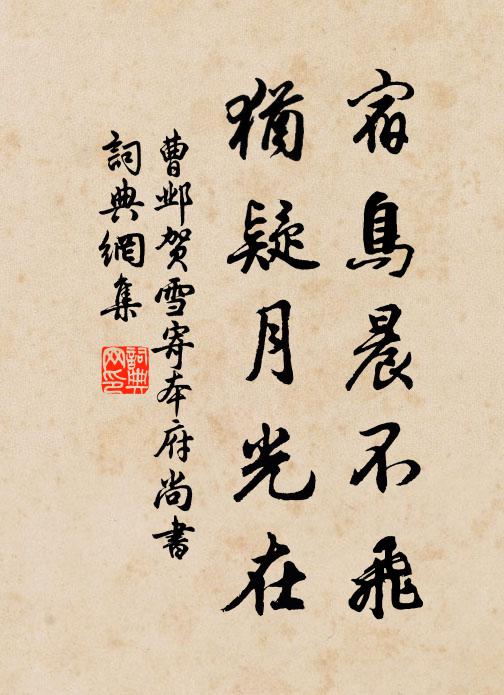 宿鳥晨不飛
猶疑月光在
曹邺贺雪寄本府尚書
詞典網集
詞典
网印